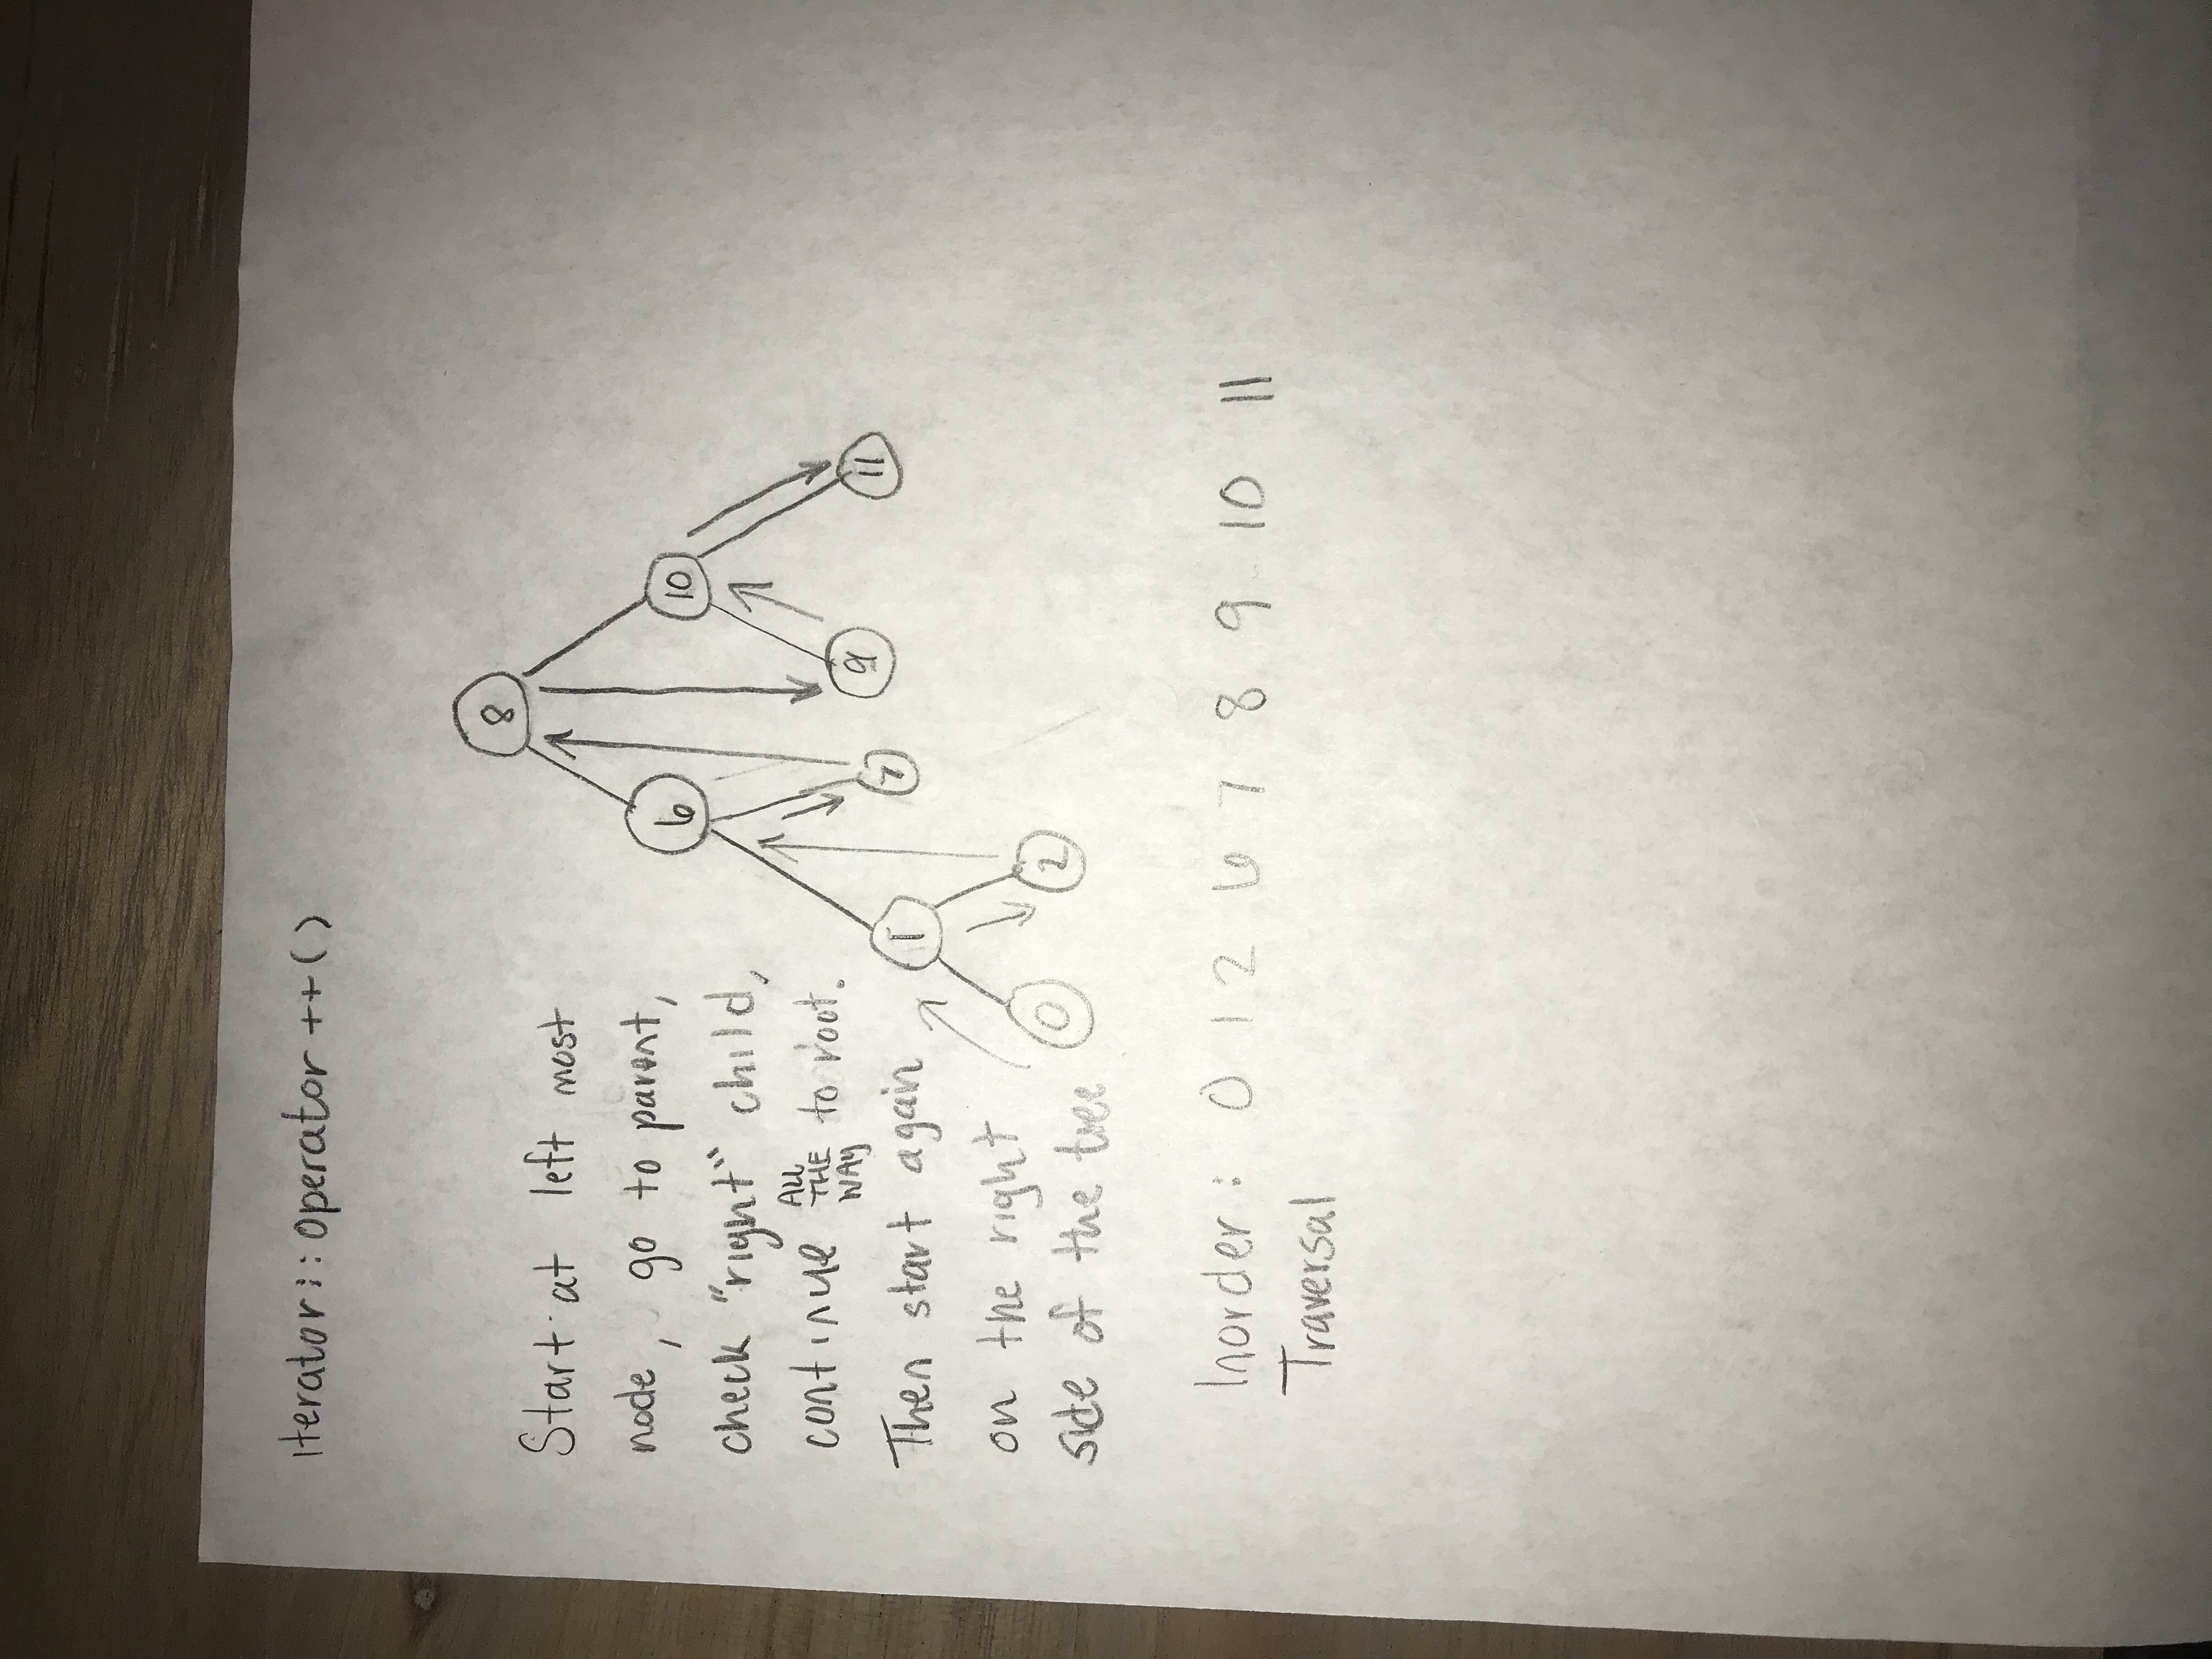 iterator :: operator ++ ( )
Start at left most
node, go to parent,
check "right" child,
continue ALL THE WAY to root.
Then start again
on the right
side of the tree
8
6
10
1
7
9
11
0
2
Inorder : 0 1 2 6 7 8 9 10 11
Traversal